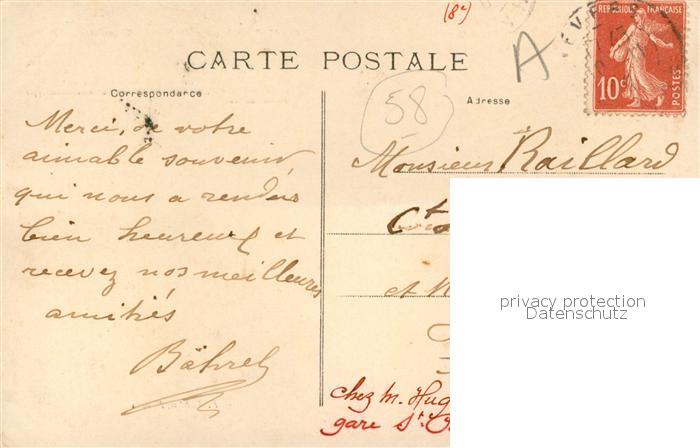 (8e)
A
CARTE POSTALE
REPUBLIQUE FRANÇAISE
10c
POSTES
Correspondance
58
Adresse
Merci, de votre
aimable souvenir
qui nous a rendus
bien heureux et
recevez nos meilleures
amitiés
Monsieur Raillard
et
chez m. Hug
gare St.
privacy protection
Datenschutz